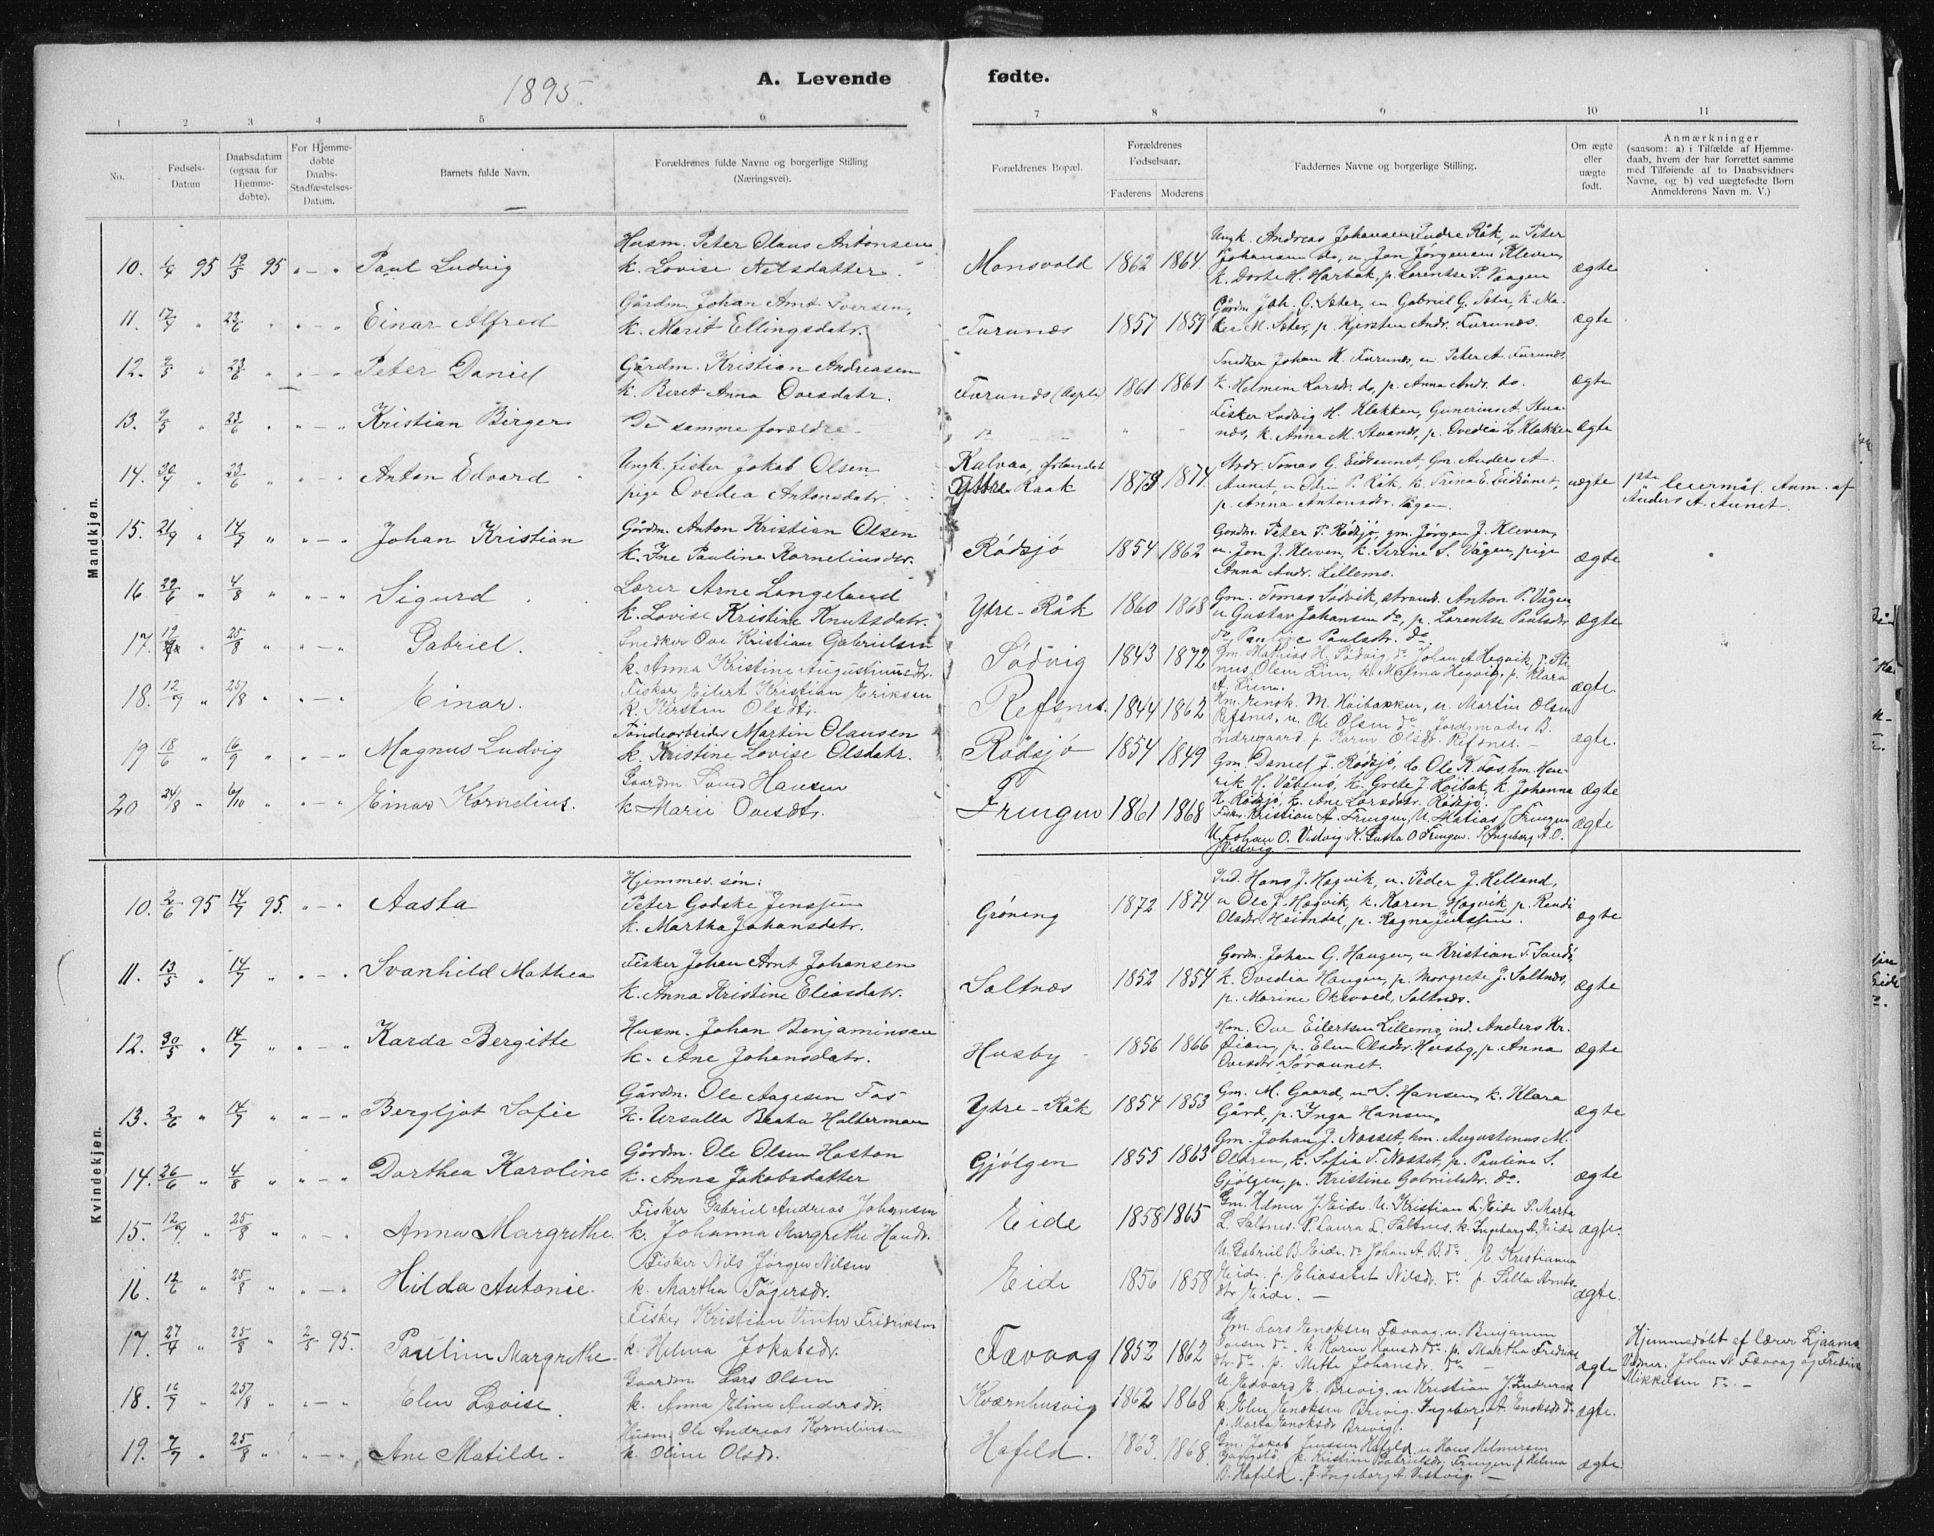 1895.
A. Levende fødte.
1 2 3 4 5 6 7 8 9 10 11
No.
Fødsels-Datum
Daabsdatum (ogsaa for Hjemmedøbte).
For Hjemmedøbte Daabs-Stadfæstelses-Datum.
Barnets fulde Navn.
Forældrenes fulde Navne og borgerlige Stilling (Næringsvei).
Forældrenes Bopæl.
Forældrenes Fødselsaar.
Faderens Moderens
Faddernes Navne og borgerlige Stilling.
Om ægte eller uægte født.
Anmærkninger
(saasom: a) i Tilfælde af Hjemmedaab, hvem der har forrettet samme med Tilføiende af to Daabsvidners Navne, og b) ved uægtefødte Børn Anmelderens Navn m. V.)
Mandkjøn.
10. 95 19/5 95 " — " Paul Ludvig
Husm. Peter Olaus Antonsen
k. Lovise Nelsdatter
Monsvold 1862 1864
Ungk. Andreas Johansen Indre Råk, u Peter
Johansen do, u Jon Jørgensen Kleven,
k. Dorte H. Harbak, p. Lorentse P. Vaagen
ægte
11. 17/4 " 23/6 " " — " Einar Alfred
Gårdm. Johan Arnt Iversen,
k. Marit Ellingsdatr.
Furunes 1857 1859
Gårdm. Joh. G. Seter, u Gabriel G. Seter, k. Ma-
ren M. Seter, p. Kjersten Andr. Furunes.
ægte
12. 9/5 " 23/6 " " — " Peter Daniel
Gårdm. Kristian Andreasen
k. Beret Anna Ovesdatr.
Furunes (Aspli) 1861 1861
Snedker Johan K. Furunes, u Peter A. Furunes,
k. Helmine Larsdr. do, p. Anna Andr. do.
ægte
13. 9/5 " 23/6 " " — " Kristian Birger
De samme forældre
Fisker Ludvig H. Klakken, Gunerius A. Stua-
nes, k. Anna M. Stuanes, p. Ovedia L. Klakken
ægte
14. 30/4 " 23/6 " " — " Anton Edvard
Ungk. fisker Jokab Olsen
pige Ovedia Antonsdatr.
Kalvaa, Ørlandet
Yttre Raak 1873 1874
Strdr. Tomas G. Eidsaunet, Gm. Anders A.
Aunet, u Otin P. Råk, k. Trina E. Eidsånet,
p. Anna Antonsdr. Vågen.
uægte
1ste leiermål. Anm. af
Anders A. Aunet.
15. 14/7 " " — " Johan Kristian
Gårdm. Anton Kristian Olsen
k. Ine Pauline Korneliusdtr.
Rødsjø 1854 1862
Gårdm. Peter P. Rødsjø, gm. Jørgen J. Kleven,
u. Jon J. Kleven, k. Serine S. Vågen, pige
Anna Andr. Lillemo.
ægte
16. 22/6 " 4/8 " " — " Sigurd
Lærer Arne Langeland
k. Lovise Kristine Knutsdatr.
Ytre-Råk 1860 1868
Gm. Tomas Sødvik, strands. Anton P. Vågen
u Gustav Johansen do, p. Lorentse Paulsdr.
do, Pauline Paulsdr. do.
ægte
17. 25/8 " " — " Gabriel.
Snedker Ove Kristian Gabrielsen
k. Anna Kristine Augustinusdr.
Sødvig 1843 1872
Gm. Mathias H. Sødvig, do Johan A Hegvik, do Sti-
nus Olsen Lien, k. Malma Hegvig, p. Klara
A. Lien.
ægte.
18. 12/7 " 25/8 " " — " Einar.
Fisker Eilert Kristian Eriksen
k. Kirsten Olsdtr.
Refsnes. 1844 1862
Hm. Enok. M. Høibakken, u. Martin Olsen
Refsnes, u Ole Olsen do Jordemoder B.
Indregaard, p. Karin Olsdr. Refsnes. —
ægte.
19 18/6 " 16/9 " " — " Magnus Ludvig
Tøndearbeider Martin Olausen
k. Kristine Lovise Olsdatr.
Rødsjø 1854 1849
Gm. Daniel J. Rødsjø, do Ole K. Fos, hm. Hen-
rik H. Våbenø, k. Grete J Høibak, k. Johanna
K. Rødsjø, k. Ane Larsdatr. Rødsjø.
ægte
20 24/8 " 6/10 " " — " Einar Kornelius.
Gaardm. Hansen
k. Marie Ovesdtr.
Fringen 1861 1868
Fisker Kristian A. Fringen, U. Matias J Fringen
U. Johan O. Vedvig K. Gusta O Fringen. P. Ingeborg A. O.
Vedvig —
ægte
Kvindekjøn.
10. 2/6 95 14/7 95. " — " Aasta
Hjemmev. søn:
Peter Godske Jenssen
k. Martha Johansdatr.
Grøning 1872 1874
Ind. Hans J. Hogvik, u. Peder J. Helland,
u Ole J. Hogvik, k. Karen Hogvik, p. Randi
Olsdr. Heimdal, p. Ragna Jenssen.
ægte
11. 13/5 " 14/7 " " — " Svanhild Mathea
Fisker Johan Arnt Johansen
k. Anna Kristine Eliasdatr.
Saltnes 1852 1854
Gårdm. Johan G. Haugen, u Kristian T. Sandø,
k. Ovedia Haugen, p. Margrete J. Saltnes,
p. Marine Oksvold, Saltnes.
ægte
12. 30/5 " 14/7 " " — " Karda Bergitte
Husm. Johan Benjaminsen
k. Ane Johansdatr.
Husby 1856 1866
Hm. Ove Eilertsen Lillemo, ind. Anders Kr.
Øian, p. Elen Olsdr. Husby, p. Anna
Ovesdtr. Søraunet.
ægte
13. 2/6 " 14/7 " " — " Bergljot Sofie
Gårdm. Ole Aagesen Fos
k. Ursulla Beata Holterman
Ytre-Råk 1854 1853
Gm. M. Gaard, u S. Hansen, k. Klara
Gård, p. Inga Hansen,
ægte
14. 26/6 " 4/8 " " — " Dorthea Karoline
Gårdm. Ole Olsen Hoston
k. Anna Jakobsdatter
Gjølgen 1855 1863
Gm. Johan J. Nosset, hm. Augustenus M.
Olden, k. Sofia T. Nosset, p. Paulina S.
Gjølgen, p. Kristine Gabrielsdr. do.
ægte
15. 12/7 " 25/8 " " — " Anna Margrethe.
Fisker Gabriel Andreas Johansen
k. Johanna Margrethe Hansdr.
Eide 1858 1865
Gm. Elmer J. Eide U. Kristian L. Eide P. Marta
L. Saltnes. P. Laura L. Saltnes, k. Ingeborg A. Eide
ægte.
16. 12/6 " 25/8 " " — " Hilda Antonie.
Fisker Nils Jørgen Nilsen
k. Martha Tøgersdr.
Eide 1856 1858
U. Gabriel B. Eide. do Johan A. B. do. E Kristianna
Eide. p. Eliasabet Nilsdr. do p. Silla Arnts-
dtr Eide. —
ægte.
17. 27/4 " 25/8 " 2/5 95. Pauline Margrethe
Fisker Kristian Vinter Fridriksen
k. Helma Jokobsdr.
Fævaag 1852 1862
Gm. Lars Enoksen Fævaag, u. Benjamin
k Karen do. p. Martha Fredriks-
dtr do p. Mette Johansdr. do —
ægte
Hjemmedøbt af lærer Ljaamo
Vidner. Johan N. Fævaag og Fredrik
Mikkelsen do —
18. 16/7 " 25/8 " " — " Elen Lovise.
Gaardm Lars Olsen
k. Anna Eline Andersdr.
Kvernhusvig 1862 1868
U Edvard E. Brevig, u Kristian J.
k. Elen Enoksen Brevig. Ingeborg A Enoksdr do
p. Marta Enoksdr Brevig.
ægte.
19. 7/7 " 25/8 " " — " Ane Matilde.
Husm Ole Andreas Kornelinsen
k. Oline Olsdr.
Hafeld. 1863. 1868.
Gm. Jakob Jenssen Hafeld u Hans Helmersen
k. Kristine Gabrielsdr Fringen p Helma
B. Hafeld. p. Ingeborg A Vestvig —
ægte